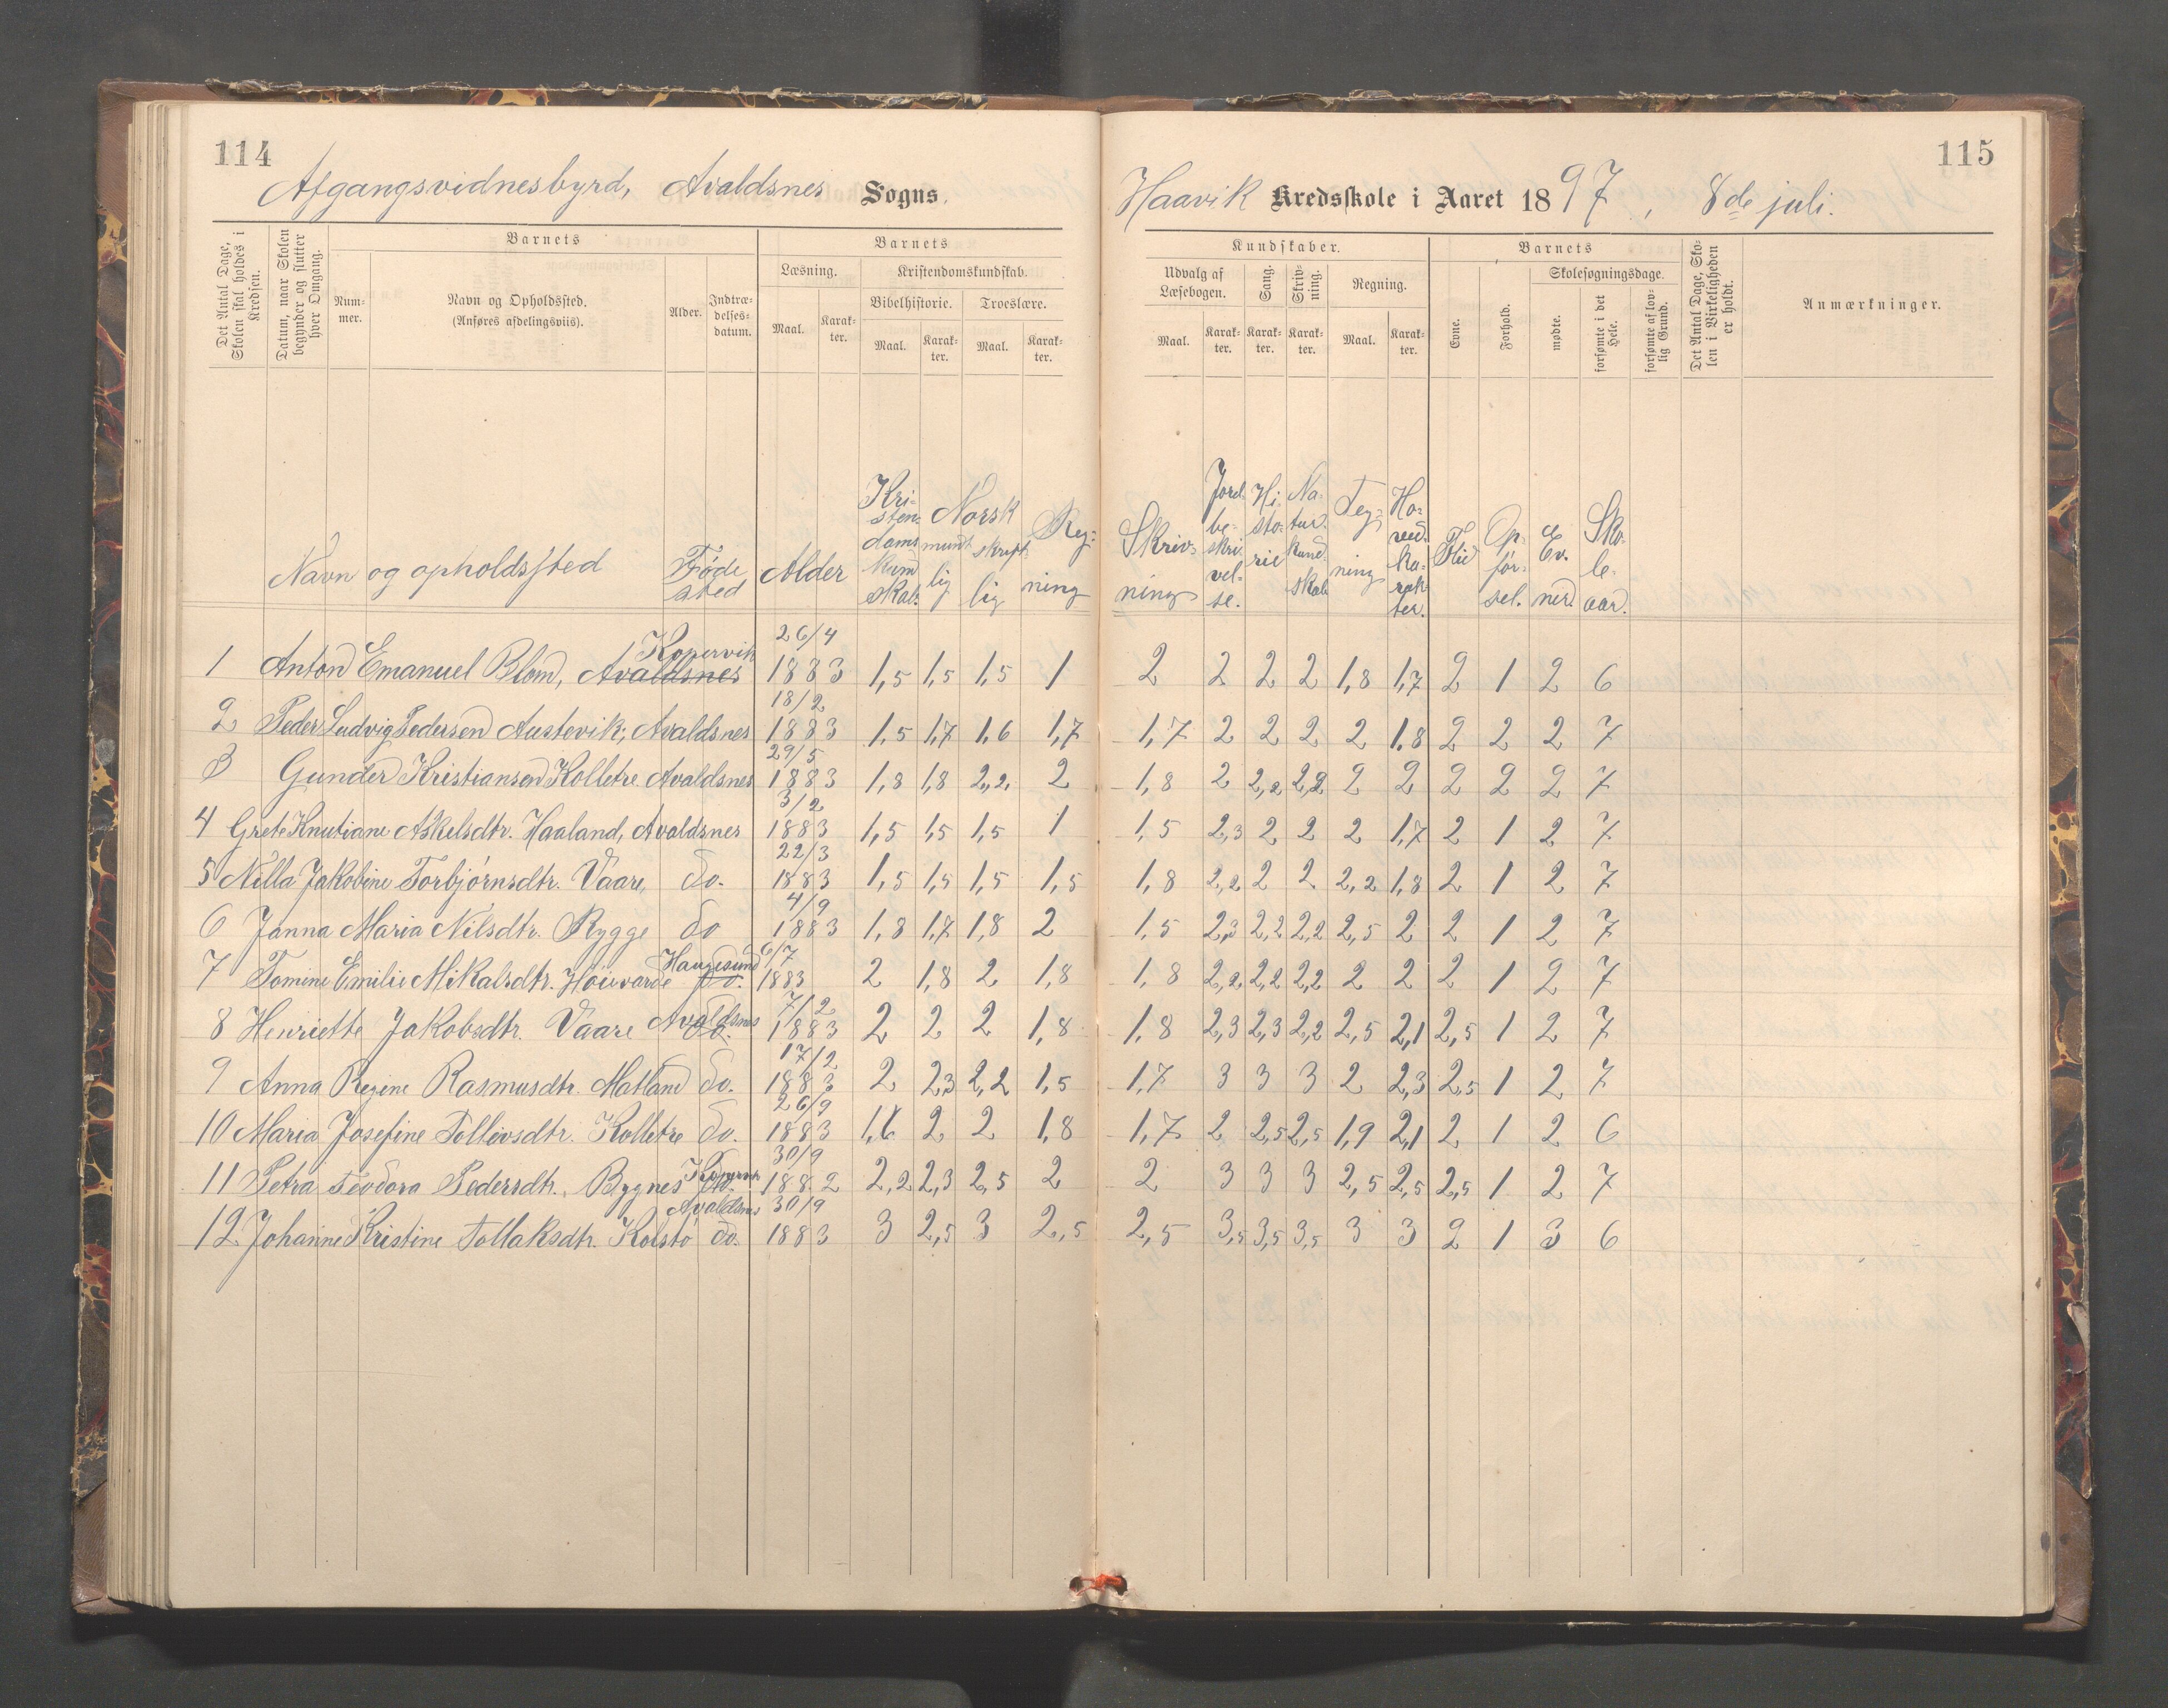 114
115
Afgangsvidnesbyrd, Avaldsnes Sogns. Haavik Kredsskole i Aaret 1897, 8de juli.
Det Antal Dage, Skolen skal holdes i Kredsen.
Datum, naar Skolen begynder og slutter hver Omgang.
Barnets
Nummer.
Navn og Opholdssted.
(Anføres afdelingsviis).
Alder.
Indtrædelsesdatum.
Barnets
Læsning.
Maal.
Karakter.
Kristendomskundskab.
Bibelhistorie.
Troeslære.
Maal.
Karakter.
Maal.
Karakter.
Kundskaber.
Udvalg af Læsebogen.
Maal.
Karakter.
Sang.
Karakter.
Skrivning.
Karakter.
Regning.
Maal.
Karakter.
Barnets
Evne.
Forhold.
Skolesøgningsdage.
mødte.
forsømte i det Hele.
forsømte af lovlig Grund.
Det Antal Dage, Skolen i Virkeligheden er holdt.
Anmærkninger.
Navn og opholdssted Føde sted Alder Kristendoms kund skab. Norsk mundt lig skrift lig Reg- ning Skriv- ning Jord be- skri vel- se. Hi. sto- rie Na- tur. kund. skab Teg- ning Ho- ved. ka- rak- ter. Flid Op. før- sel. Ev. ner. Sko- le- aar.
Kopervik 26/4
1 Anton Emanuel Blom, Avaldsnes 1883 1,5 1,5 1,5 1 2 2 2 2 1,8 1,7 2 1 2 6
18/2
2 Peder Ludvig Pedersen Austevik, Avaldsnes 1883 1,5 1,7 1,6 1,7 1,7 2 2 2 2 1,8 2 2 2 7
29/5
3 Gunder Kristiansen Kolletre Avaldsnes 1883 1,8 1,8 2,2 2 1,8 2 2,2 2,2 2 2 2 2 2 7
3/2
4 Grete Knutiane Askelsdtr. Haaland, Avaldsnes 1883 1,5 1,5 1,5 1 1,5 2,3 2 2 2 1,7 2 1 2 7
22/3
5 Nilla Jakobine Torbjörnsdtr. Vaare, do. 1883 1,5 1,5 1,5 1,5 1,8 2,2 2 2 2,2 1,8 2 1 2 7
4/9
6 Janna Maria Nilsdtr. Rygge do 1883 1,8 1,7 1,8 2 1,5 2,3 2,2 2,2 2,5 2 2 1 2 7
Haugesund 6/7
7 Tomine Emilie Mikalsdtr. Höievarde do. 1883 2 1,8 2 1,8 1,8 2,2 2,2 2,2 2 2 2 1 2 7
Avaldsnes 7/2
8 Henriette Jakobsdtr. Vaare do. 1883 2 2 2 1,8 1,8 2,3 2,3 2,2 2,5 2,1 2,5 1 2 7
17/2
9 Anna Regine Rasmusdtr. Matland do. 1883 2 2,3 2,2 1,5 1,7 3 3 3 2 2,3 2,5 1 2 7
26/9
10 Maria Josefine Tollivsdtr. Kolletre do. 1883 1,6 2 2 1,8 1,7 2 2,5 2,5 1,9 2,1 2 1 2 6
Kopervik 30/9
11 Petra Teodora Pedersdtr. Bygnes do. 1882 2,2 2,3 2,5 2 2 3 3 3 2,5 2,5 2,5 1 2 7
Avaldsnes 30/9
12. Johanne Kristine Tollaksdtr. Kolstö do. 1883 3 2,5 3 2,5 2,5 3,5 3,5 3,5 3 3 2 1 3 6